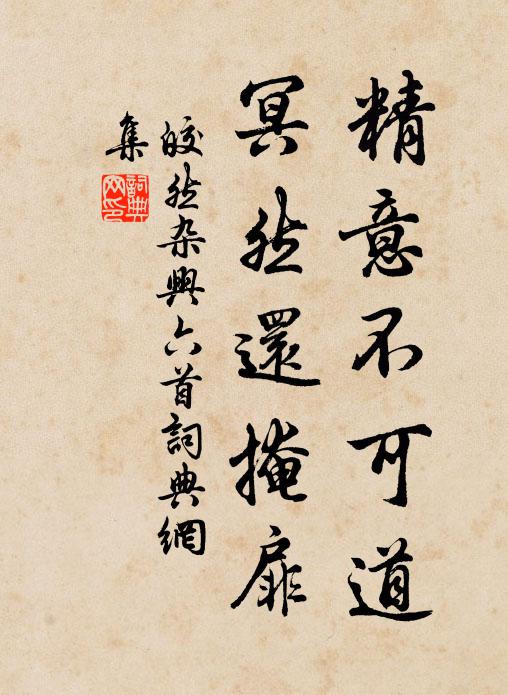 精意不可道
冥然還掩扉
皎然杂興六首詞典網
集
詞典
网印